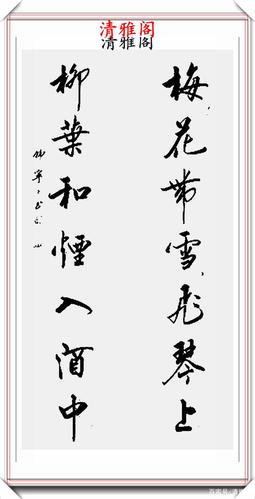 清雅阁
清雅阁
梅花带雪飛琴上
柳葉和煙入酒中